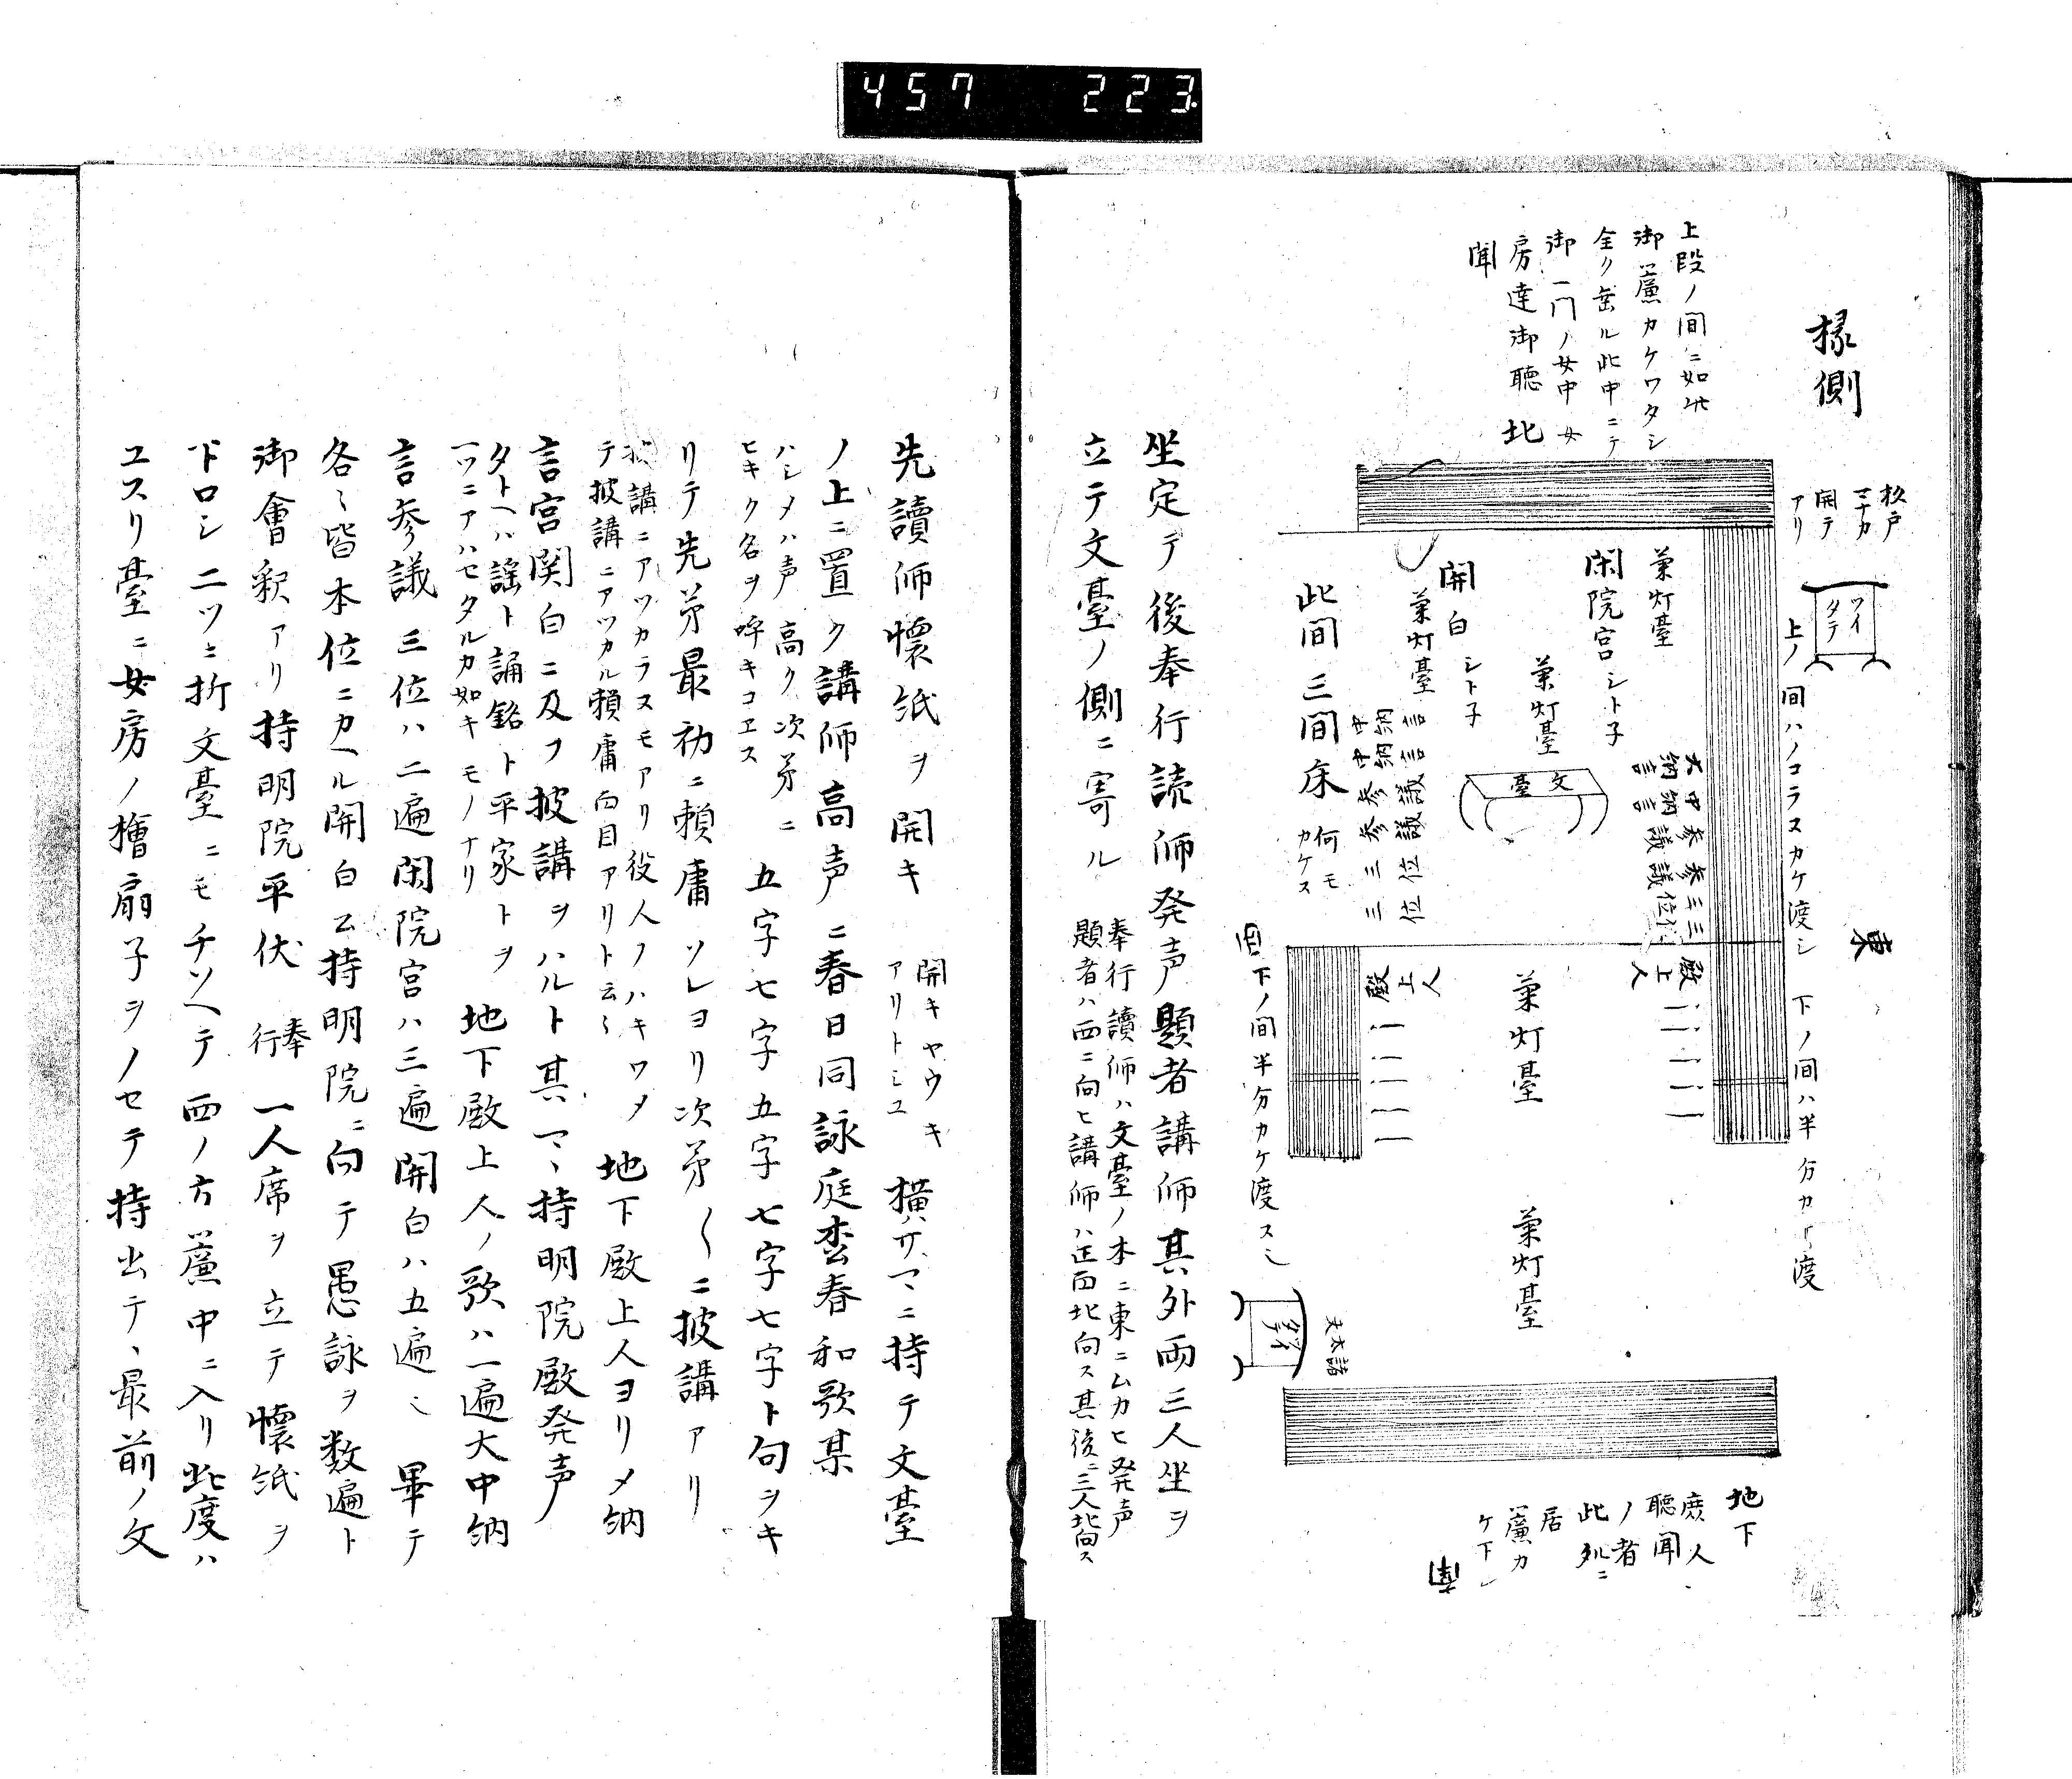 457 223
椽側
杉戸
マナカ
開テ
アリ
ツイ
タテ
上段ノ間ニ如此
御簾カケワタシ
全ク垂ル此中ニテ
御一門ノ女中女
房達御聴
聞
北
東
上ノ間ハノコラスカケ渡シ 下ノ間ハ半分カケ渡
菊灯臺
閑院宮シトネ
菊灯臺
文臺
関白シトネ
菊灯臺
此間三間床何モ
カケス
大納言
中納言
参議
参議
三位
三位
中納言
中納言
参議
参議
三位
三位
殿上人
殿上人
菊灯臺
菊灯臺
西
下ノ間半分カケ渡ス
地下
庶人
聴聞
ノ者
此列ニ
居
簾カ
ケ下シ
南
坐定テ後奉行読師発声題者講師其外両三人坐ヲ
立テ文臺ノ側ニ寄ル
奉行讀師ハ文臺ノ本ニ東ニムカヒ発声
題者ハ西ニ向ヒ講師ハ正面北向ス其後ニ三人北向ス
先讀師懐紙ヲ開キ
開キヤウキ
アリトミユ
横サマニ持テ文臺
ノ上ニ置ク講師高声ニ春日同詠庭松春和歌某
ハシメハ声高ク次第ニ
ヒキク名ヲ呼キコヱス
五字七字五字七字七字ト句ヲキ
リテ先第最初ニ頼庸ソレヨリ次第〱ニ披講アリ
披講ニアツカラスモアリ役人ノハキワメ
テ披講ニアツカル頼庸面目アリト云〻
地下殿上人ヨリメ納
言宮関白ニ及フ披講ヲハルト其マヽ持明院殿発声
タトヘハ謡ト誦銘ト平家トヲ
一ツニアハセタルカ如キモノナリ
地下殿上人ノ歌ハ一遍大中納
言参議三位ハ二遍閑院宮ハ三遍関白ハ五遍ミ畢テ
各〻皆本位ニカヘル関白公持明院ニ向テ愚詠ヲ数遍ト
御會釈アリ持明院平伏奉行一人席ヲ立テ懐紙ヲ
下ロシ二ツニ折文臺ニモチソヘテ西ノ方簾中ニ入リ此度ハ
ユスリ臺ニ女房ノ檜扇子ヲノセテ持出テ、最前ノ文